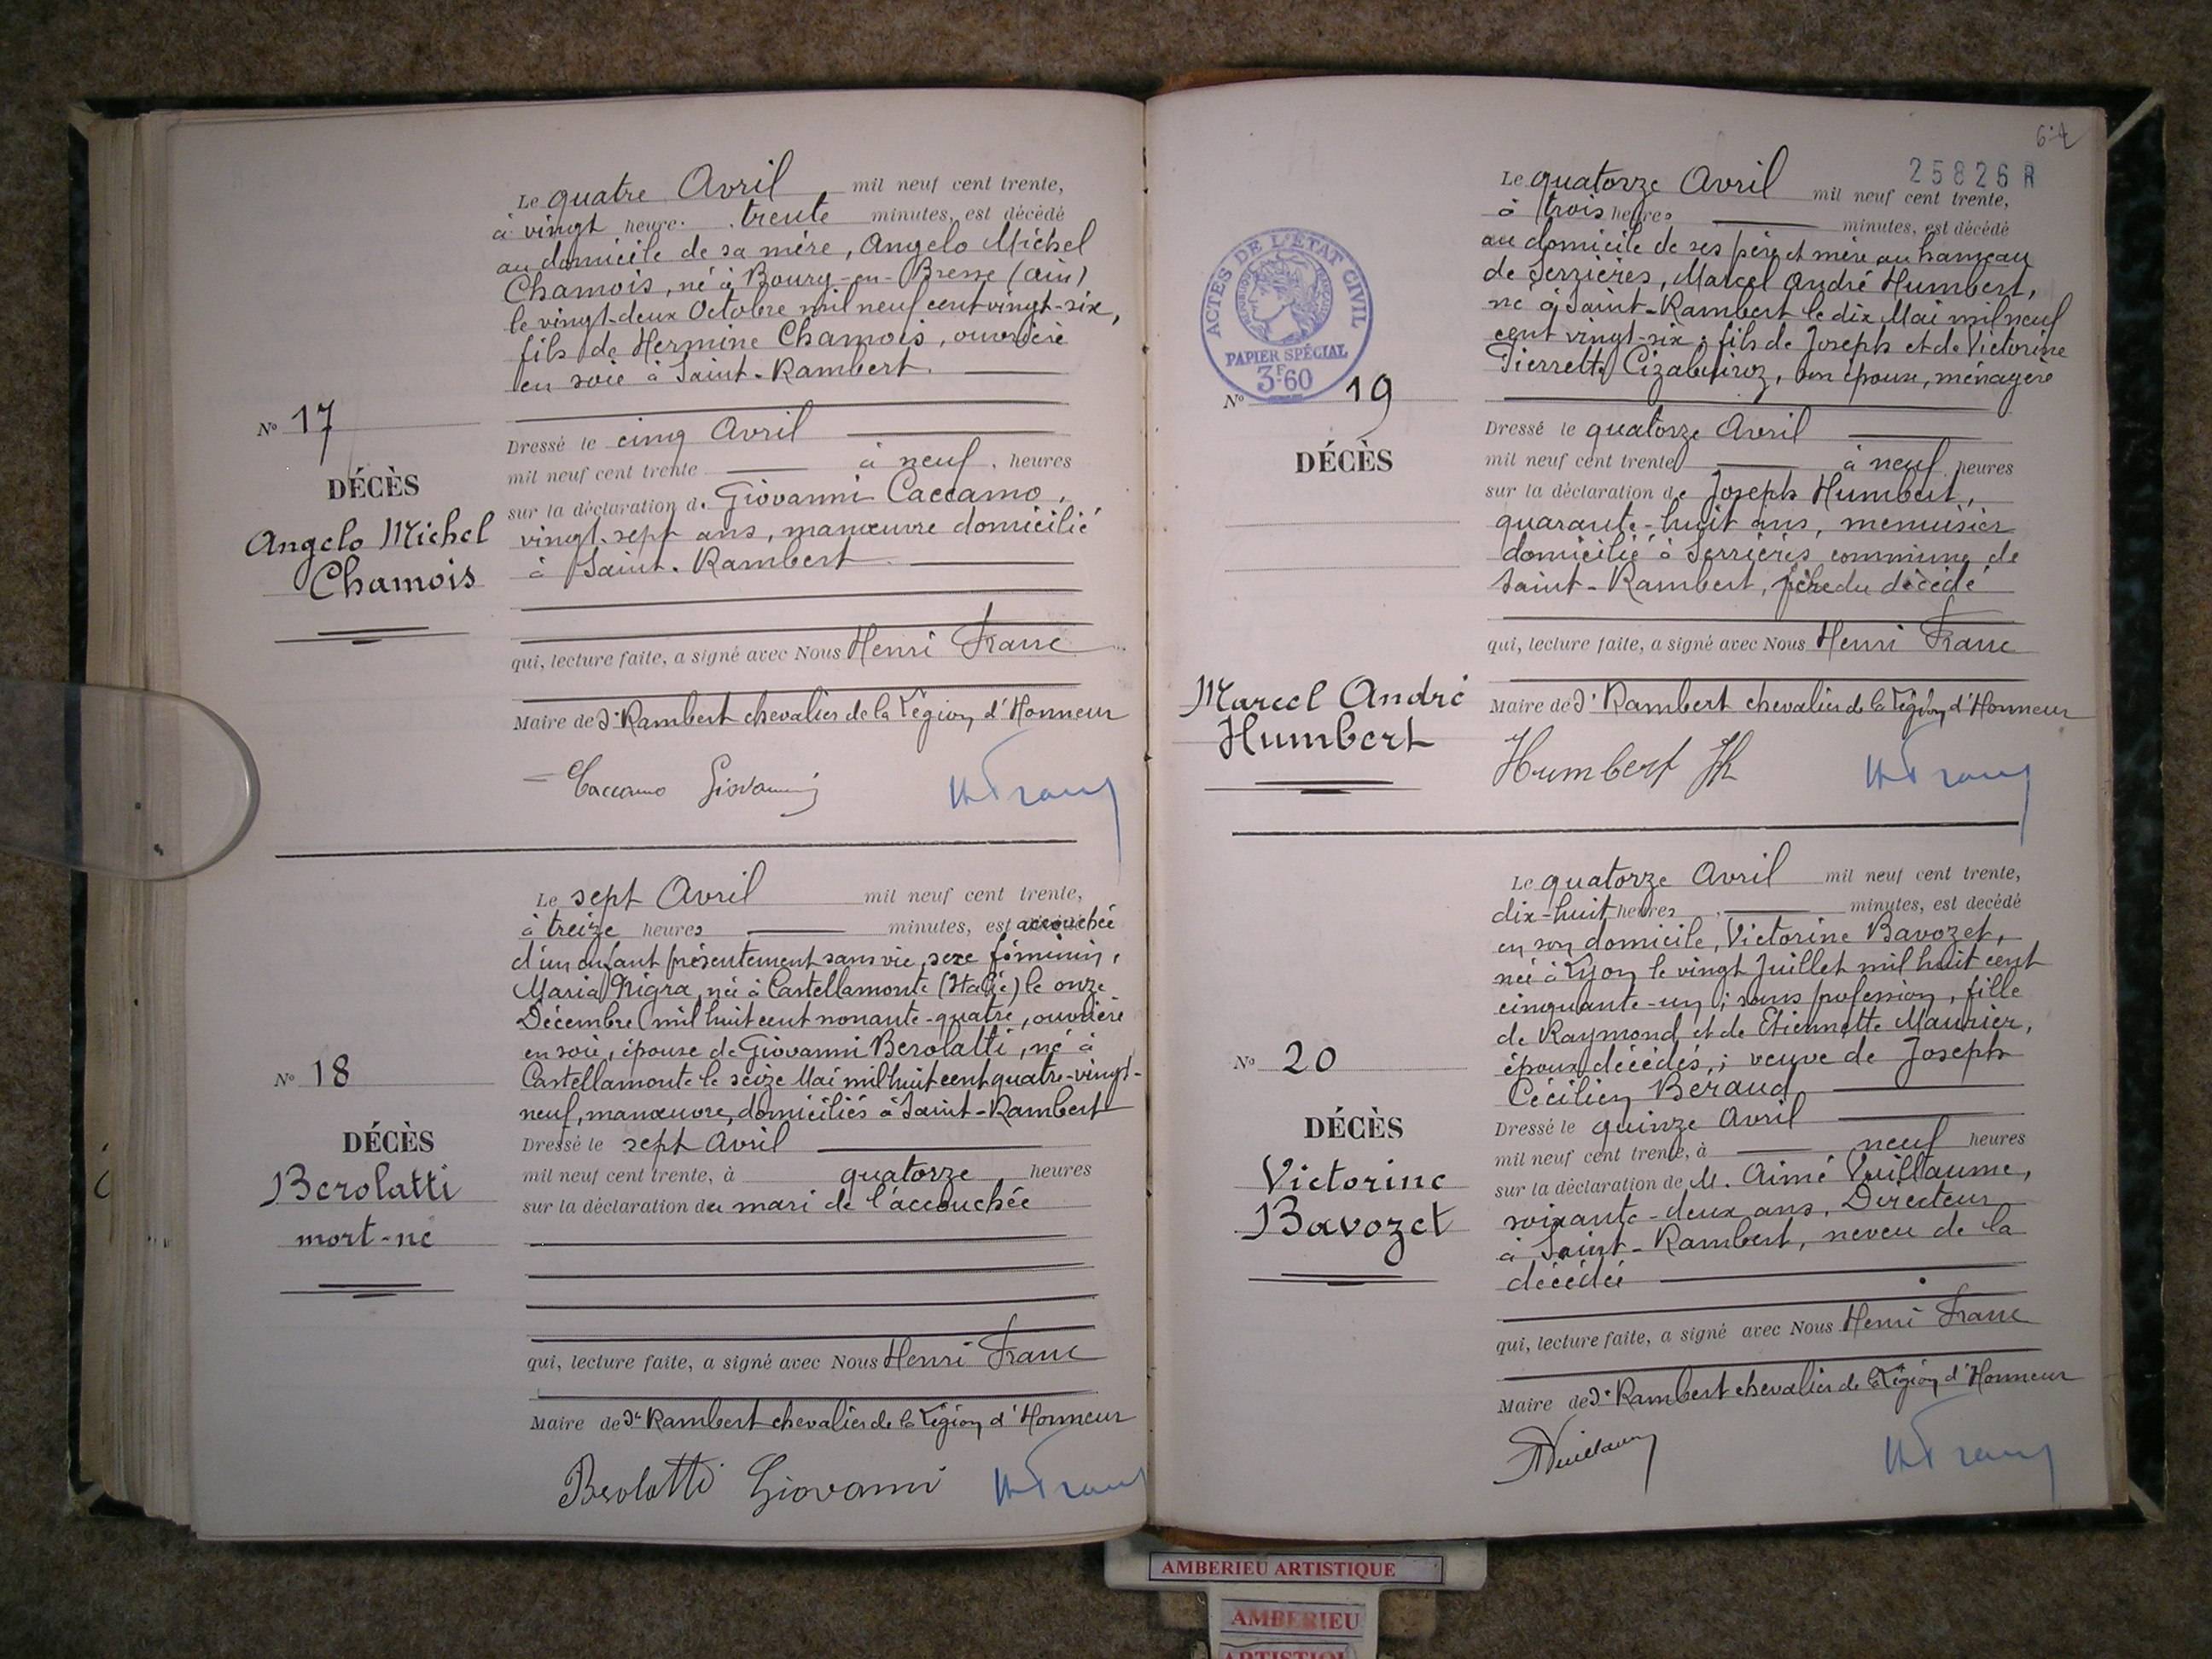 Le quatre Avril mil neuf cent trente,
à vingt heure. trente minutes, est décédé
au domicile de sa mère, Angelo Michel
Chamois, né à Bourg-en-Bresse (Ain)
le vingt-deux Octobre mil neuf cent vingt-six,
fils de Hermine Chamois, ouvrière
en soie à Saint-Rambert.
N° 17
DÉCÈS
Angelo Michel
Chamois
Dressé le cinq Avril
mil neuf cent trente à neuf heures
sur la déclaration de Giovanni Caccamo,
vingt-sept ans, manœuvre domicilié
à Saint-Rambert
qui, lecture faite, a signé avec Nous Henri Franc
Maire de St Rambert chevalier de la Légion d'Honneur
Caccamo Giovanni HFranc
Le sept Avril mil neuf cent trente,
à treize heures minutes, est accouchée
d'un enfant présentement sans vie, sexe féminin,
Maria Nigra, née à Castellamonte (Italie) le onze
Décembre mil huit cent nonante-quatre, ouvrière
en soie, épouse de Giovanni Berolatti, né à
Castellamonte le seize Mai mil huit cent quatre-vingt-
neuf, manœuvre, domiciliés à Saint-Rambert
N° 18
DÉCÈS
Berolatti
mort-né
Dressé le sept Avril
mil neuf cent trente, à quatorze heures
sur la déclaration du mari de l'accouchée
qui, lecture faite, a signé avec Nous Henri Franc
Maire de St Rambert chevalier de la Légion d'Honneur
Berolatti Giovanni HFranc
25826 R
Le quatorze Avril mil neuf cent trente,
à trois heures minutes, est décédé
au domicile de ses père et mère au hameau
de Serrières, Marcel André Humbert,
né à Saint-Rambert le dix Mai mil neuf
cent vingt-six; fils de Joseph et de Victorine
Pierrette, son épouse, ménagère
ACTES DE L'ÉTAT CIVIL
PAPIER SPÉCIAL
3F60
N° 19
DÉCÈS
Marcel André
Humbert
Dressé le quatorze Avril
mil neuf cent trente à neuf heures
sur la déclaration de Joseph Humbert,
quarante-huit ans, menuisier
domicilié à Serrières commune de
Saint-Rambert, père du décédé
qui, lecture faite, a signé avec Nous Henri Franc
Maire de St Rambert chevalier de la Légion d'Honneur
Humbert Jh HFranc
Le quatorze Avril mil neuf cent trente,
dix-huit heures minutes, est decédé
en son domicile, Victorine Bavozet,
née à Lyon le vingt Juillet mil huit cent
cinquante-un; sans profession, fille
de Raymond et de Etiennette Maurier,
époux décédés; veuve de Joseph
Cécilien Beraud
N° 20
DÉCÈS
Victorine
Bavozet
Dressé le quinze Avril
mil neuf cent trente, à neuf heures
sur la déclaration de M. Aimé Vuillaume,
soixante-deux ans, Directeur
à Saint-Rambert, neveu de la
décédée
qui, lecture faite, a signé avec Nous Henri Franc
Maire de St Rambert chevalier de la Légion d'Honneur
AVuillaume HFranc
AMBERIEU ARTISTIQUE
AMBERIEU
ARTISTIQUE